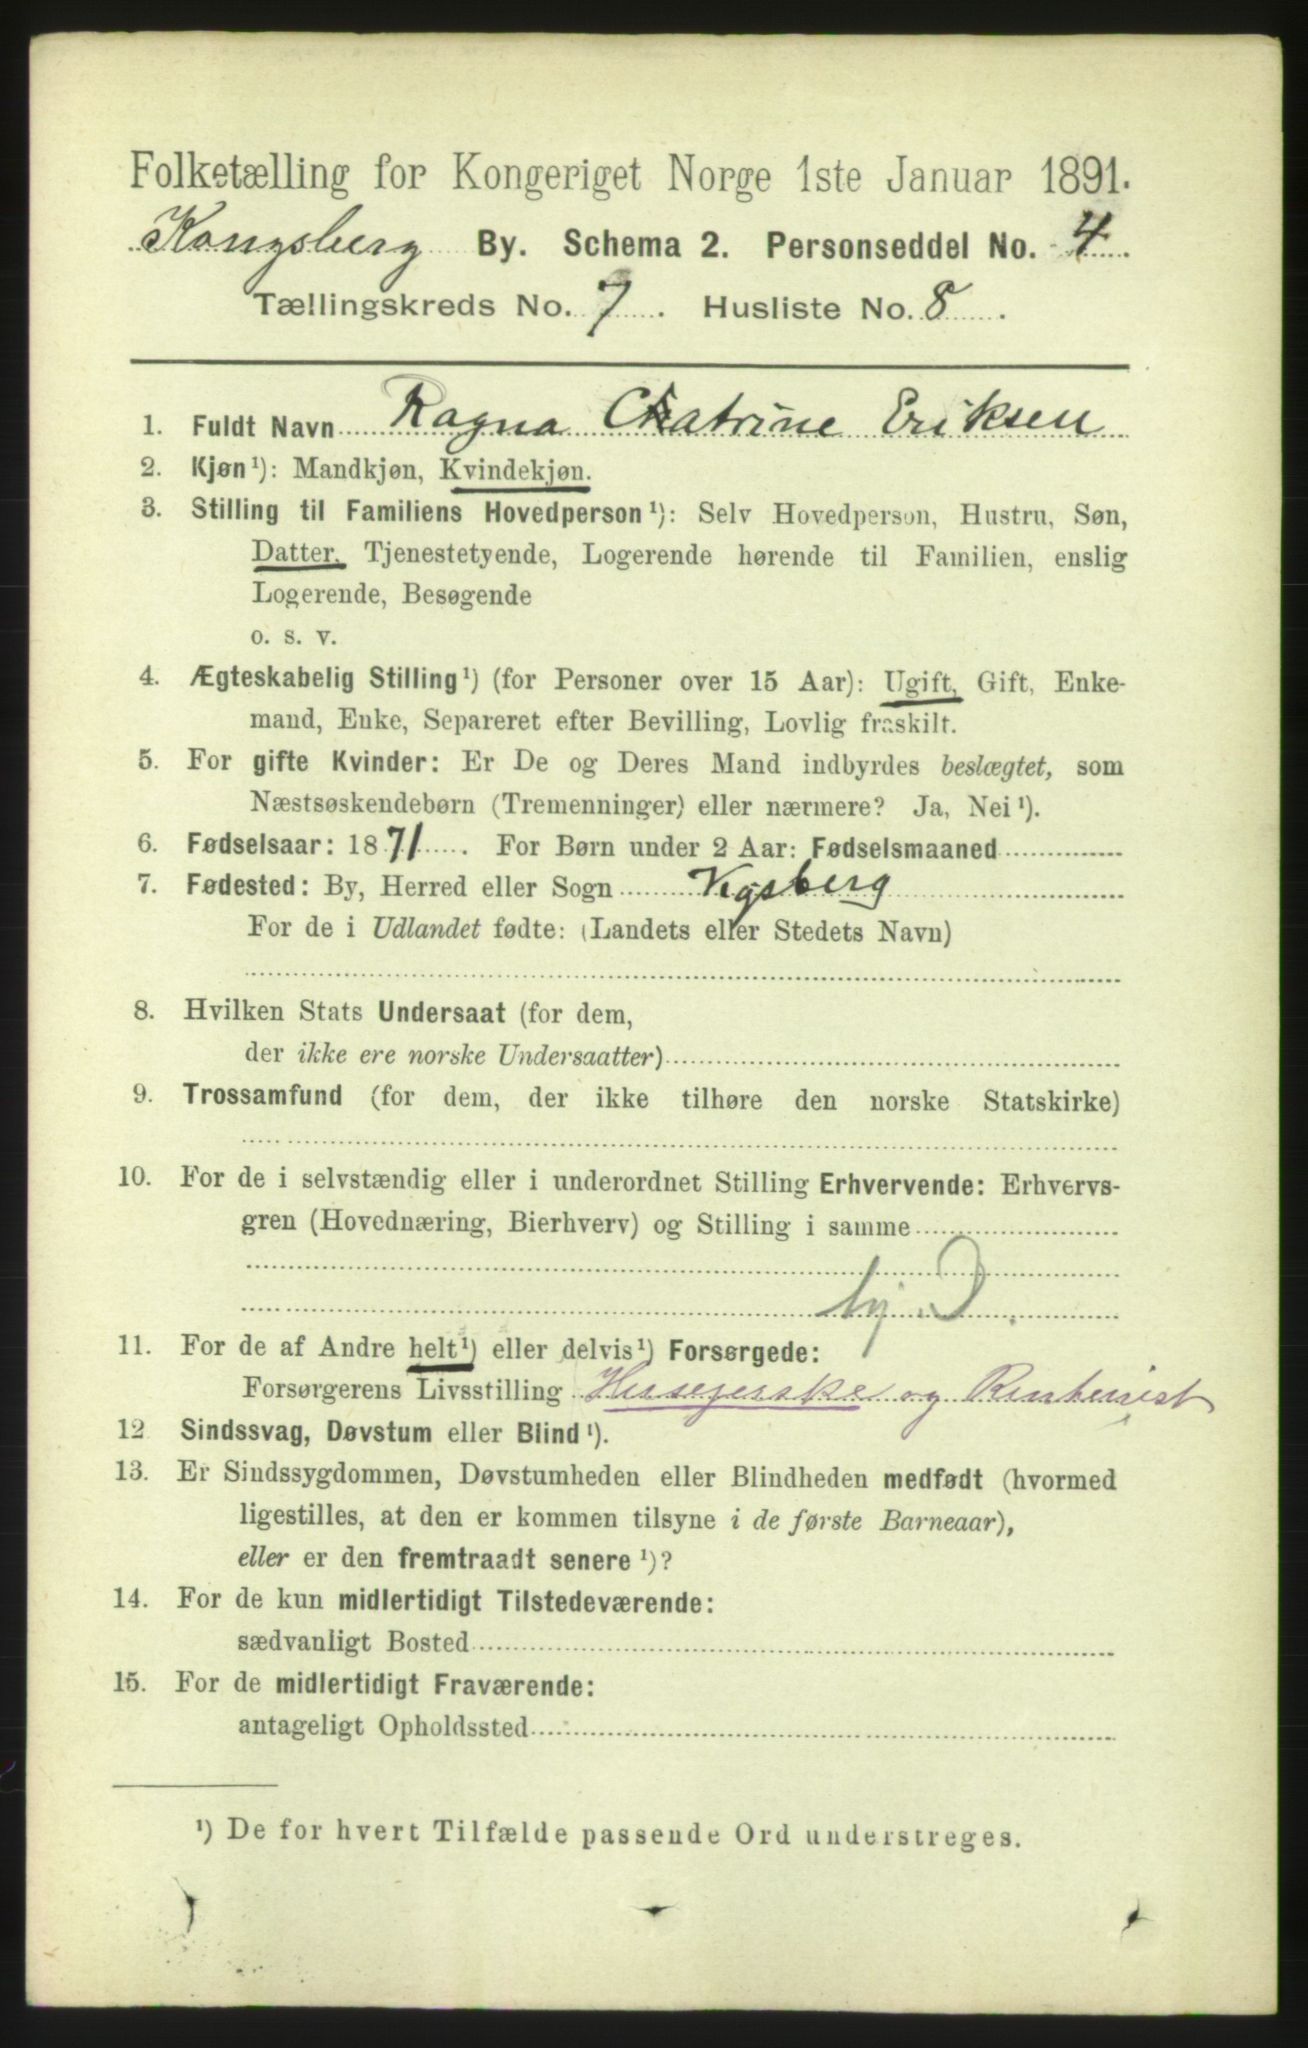 Folketælling for Kongeriget Norge 1ste Januar 1891.
Kongsberg By. Schema 2. Personseddel No. 4
Tællingskreds No. 7. Husliste No. 8.
1. Fuldt Navn Ragna Katrine Eriksen
2. Kjøn¹): Mandkjøn, Kvindekjøn.
3. Stilling til Familiens Hovedperson¹): Selv Hovedperson, Hustru, Søn,
Datter, Tjenestetyende, Logerende hørende til Familien, enslig
Logerende, Besøgende
o. s. v.
4. Ægteskabelig Stilling¹) (for Personer over 15 Aar): Ugift, Gift, Enke-
mand, Enke, Separeret efter Bevilling, Lovlig fraskilt.
5. For gifte Kvinder: Er De og Deres Mand indbyrdes beslægtet, som
Næstsøskendebørn (Tremenninger) eller nærmere? Ja, Nei¹).
6. Fødselsaar: 1871. For Børn under 2 Aar: Fødselsmaaned
7. Fødested: By, Herred eller Sogn Kgsberg
For de i Udlandet fødte: (Landets eller Stedets Navn)
8. Hvilken Stats Undersaat (for dem,
der ikke ere norske Undersaatter)
9. Trossamfund (for dem, der ikke tilhøre den norske Statskirke)
10. For de i selvstændig eller i underordnet Stilling Erhvervende: Erhvervs-
gren (Hovednæring, Bierhverv) og Stilling i samme
11. For de af Andre helt¹) eller delvis¹) Forsørgede:
Forsørgerens Livsstilling Husejerske og Rentenist
12 Sindssvag, Døvstum eller Blind¹).
13. Er Sindssygdommen, Døvstumheden eller Blindheden medfødt (hvormed
ligestilles, at den er kommen tilsyne i de første Barneaar),
eller er den fremtraadt senere¹)?
14. For de kun midlertidigt Tilstedeværende:
sædvanligt Bosted
15. For de midlertidigt Fraværende:
antageligt Opholdssted
¹) De for hvert Tilfælde passende Ord understreges.